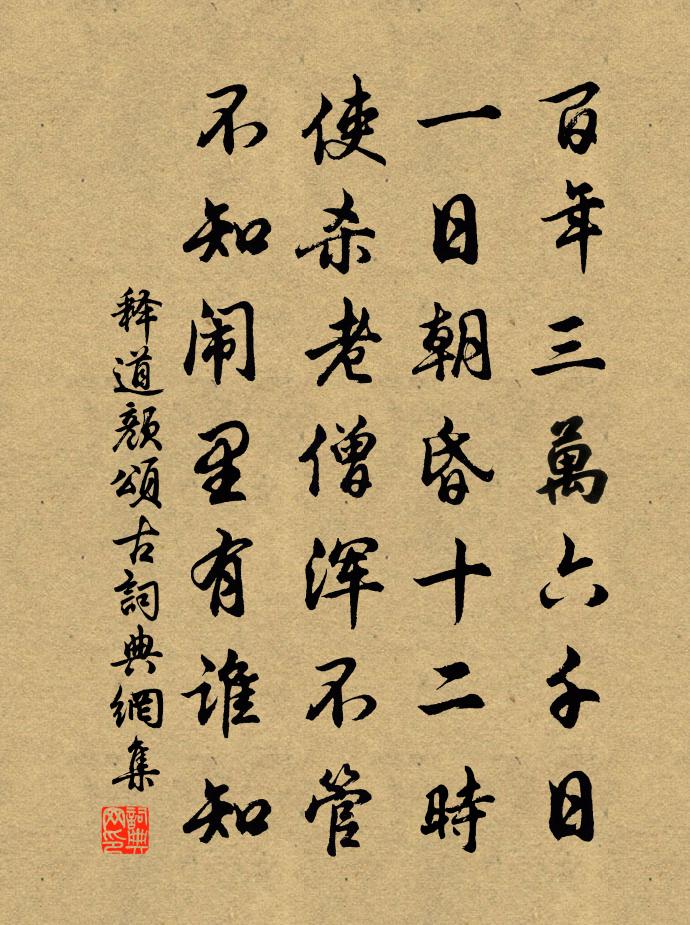 百年三萬六千日
一日朝昏十二時
使杀老僧浑不管
不知闹里有谁知
释道颜頌古詞典網集
詞典网印